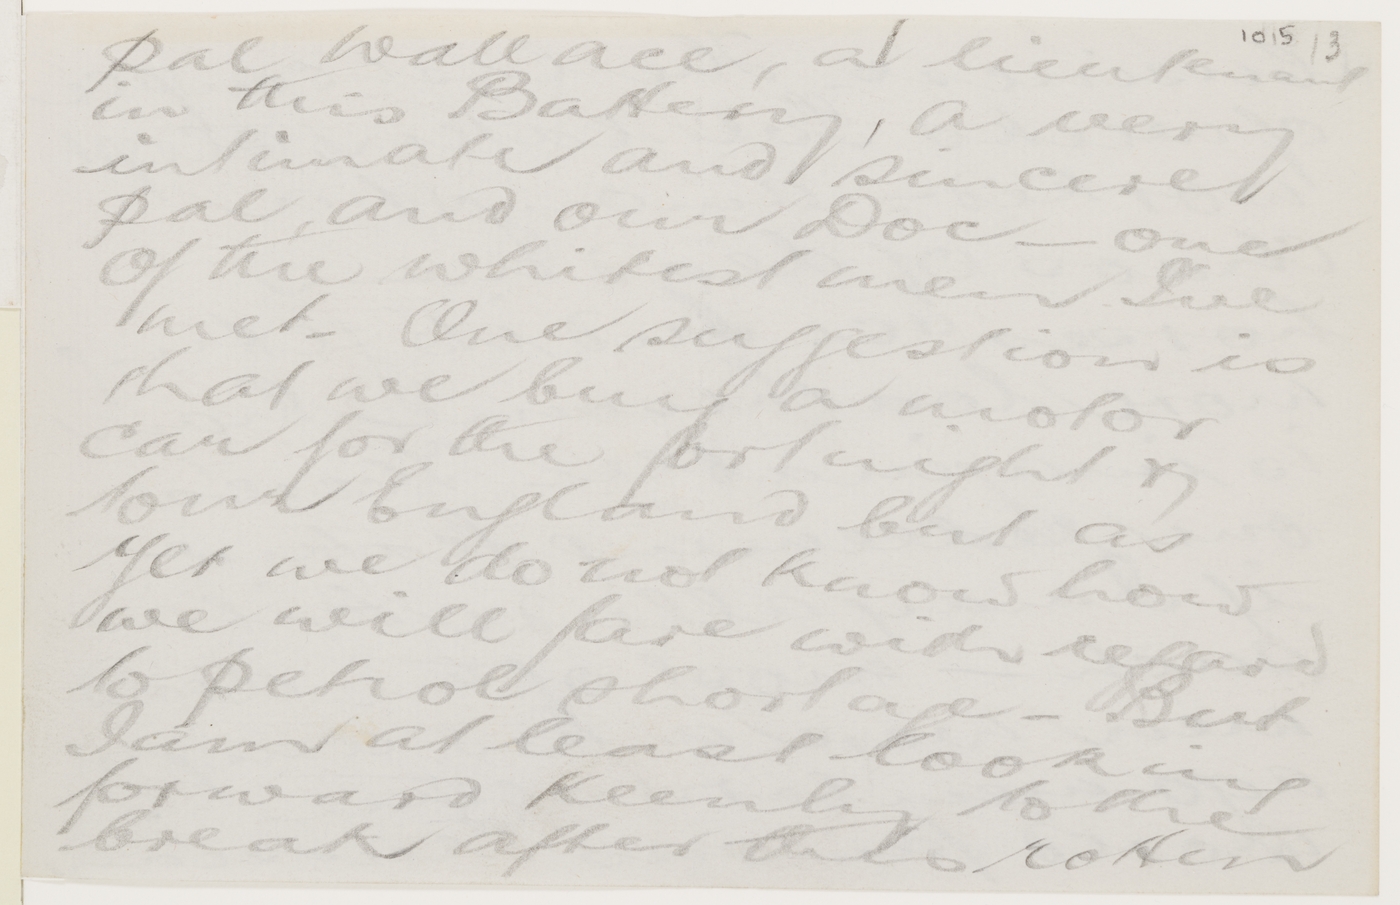 1015 / 3
pal Wallace, a lieutenant
in this Battery, a very
intimate and sincere
pal, and our Doc — one
of the whitest men I've
met - One suggestion is
that we buy a motor
car for the fortnight &
tour England but as
yet we do not know how
we will fare with regard
to petrol shortage - But
I am at least looking
forward keenly to the
break after this rotten